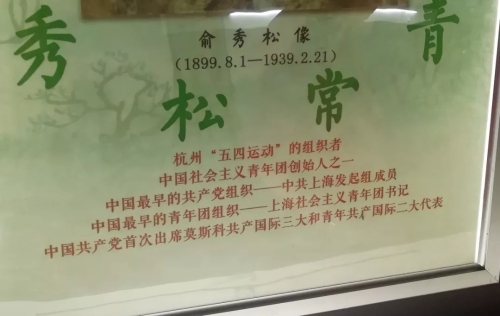 俞秀松像
(1899.8.1—1939.2.21)
秀松常青
杭州“五四运动”的组织者
中国社会主义青年团创始人之一
中国最早的共产党组织——中共上海发起组成员
中国最早的青年团组织——上海社会主义青年团书记
中国共产党首次出席莫斯科共产国际三大和青年共产国际二大代表